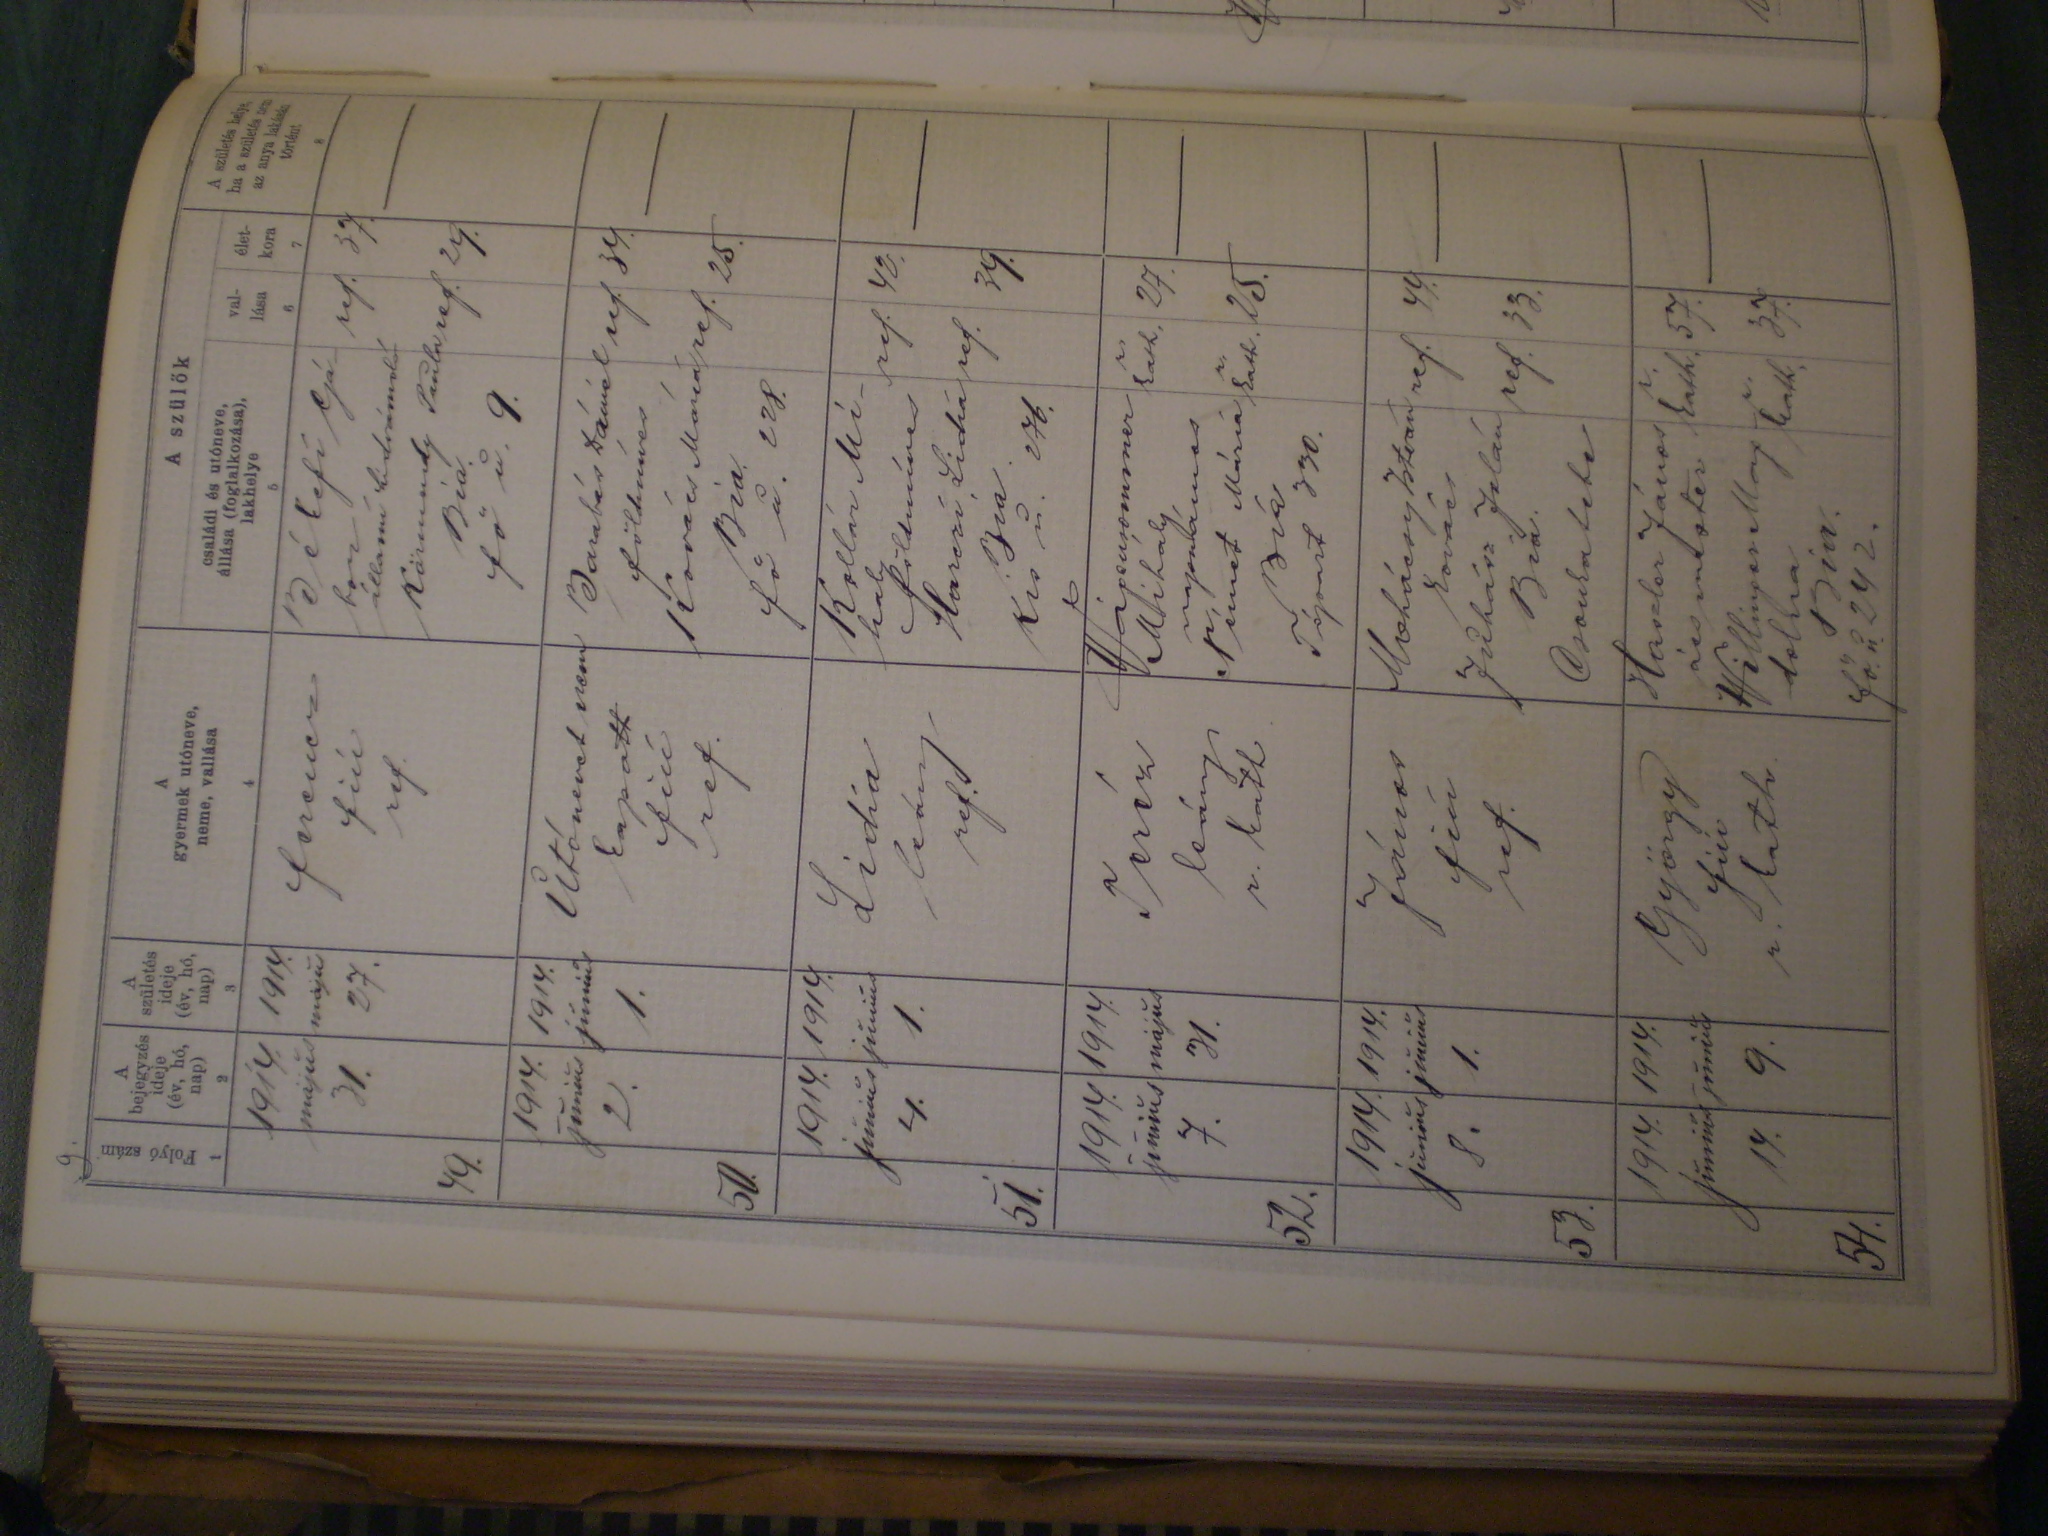 A szülők
Folyó szám
A bejegyzés ideje (év, hó, nap)
A születés ideje (év, hó, nap)
A gyermek utóneve, neme, vallása
családi és utóneve, állása (foglalkozása), lakhelye
vallása
életkora
A születés helye, ha a születés nem az anya lakásán történt
1 2 3 4 5 6 7 8
49.
1914. május 31.
1914. május 27.
Ferencz
fiú
ref.
Bélefi Gá-
bor
állami
Körmendy Paula
Bia.
fő u. 9.
ref. 37.
ref. 29.
50.
1914. június 2.
1914. június 1.
Utónevet nem
kapott
fiú
ref.
Barabás Dániel
földmíves
Kovács Mária
Bia.
fő u. 228.
ref. 34.
ref. 25.
51.
1914. június 4.
1914. június 1.
Lidia
leány
ref.
Kollár Mi-
hály
földmíves
Harczi Lidia
Bia.
Kis u. 276.
ref. 42.
ref. 39.
52.
1914. június 7.
1914. május 31.
Teréz
leány
r. kath.
Mihály
napszámos
Német Mária
Bia
Tópart 330.
r. kath. 27.
r. kath. 25.
53.
1914. június 8.
1914. június 1.
János
fiú
ref.
Mohácsy István
kovács
Juhász Julán
Bia.
ref. 44.
ref. 33.
54.
1914. június 14.
1914. június 9.
György
fiú
r. kath.
Haszler János
ács mester
Willinger Mag-
dolna
Bia.
fő u. 242.
r. kath. 57.
r. kath. 37.